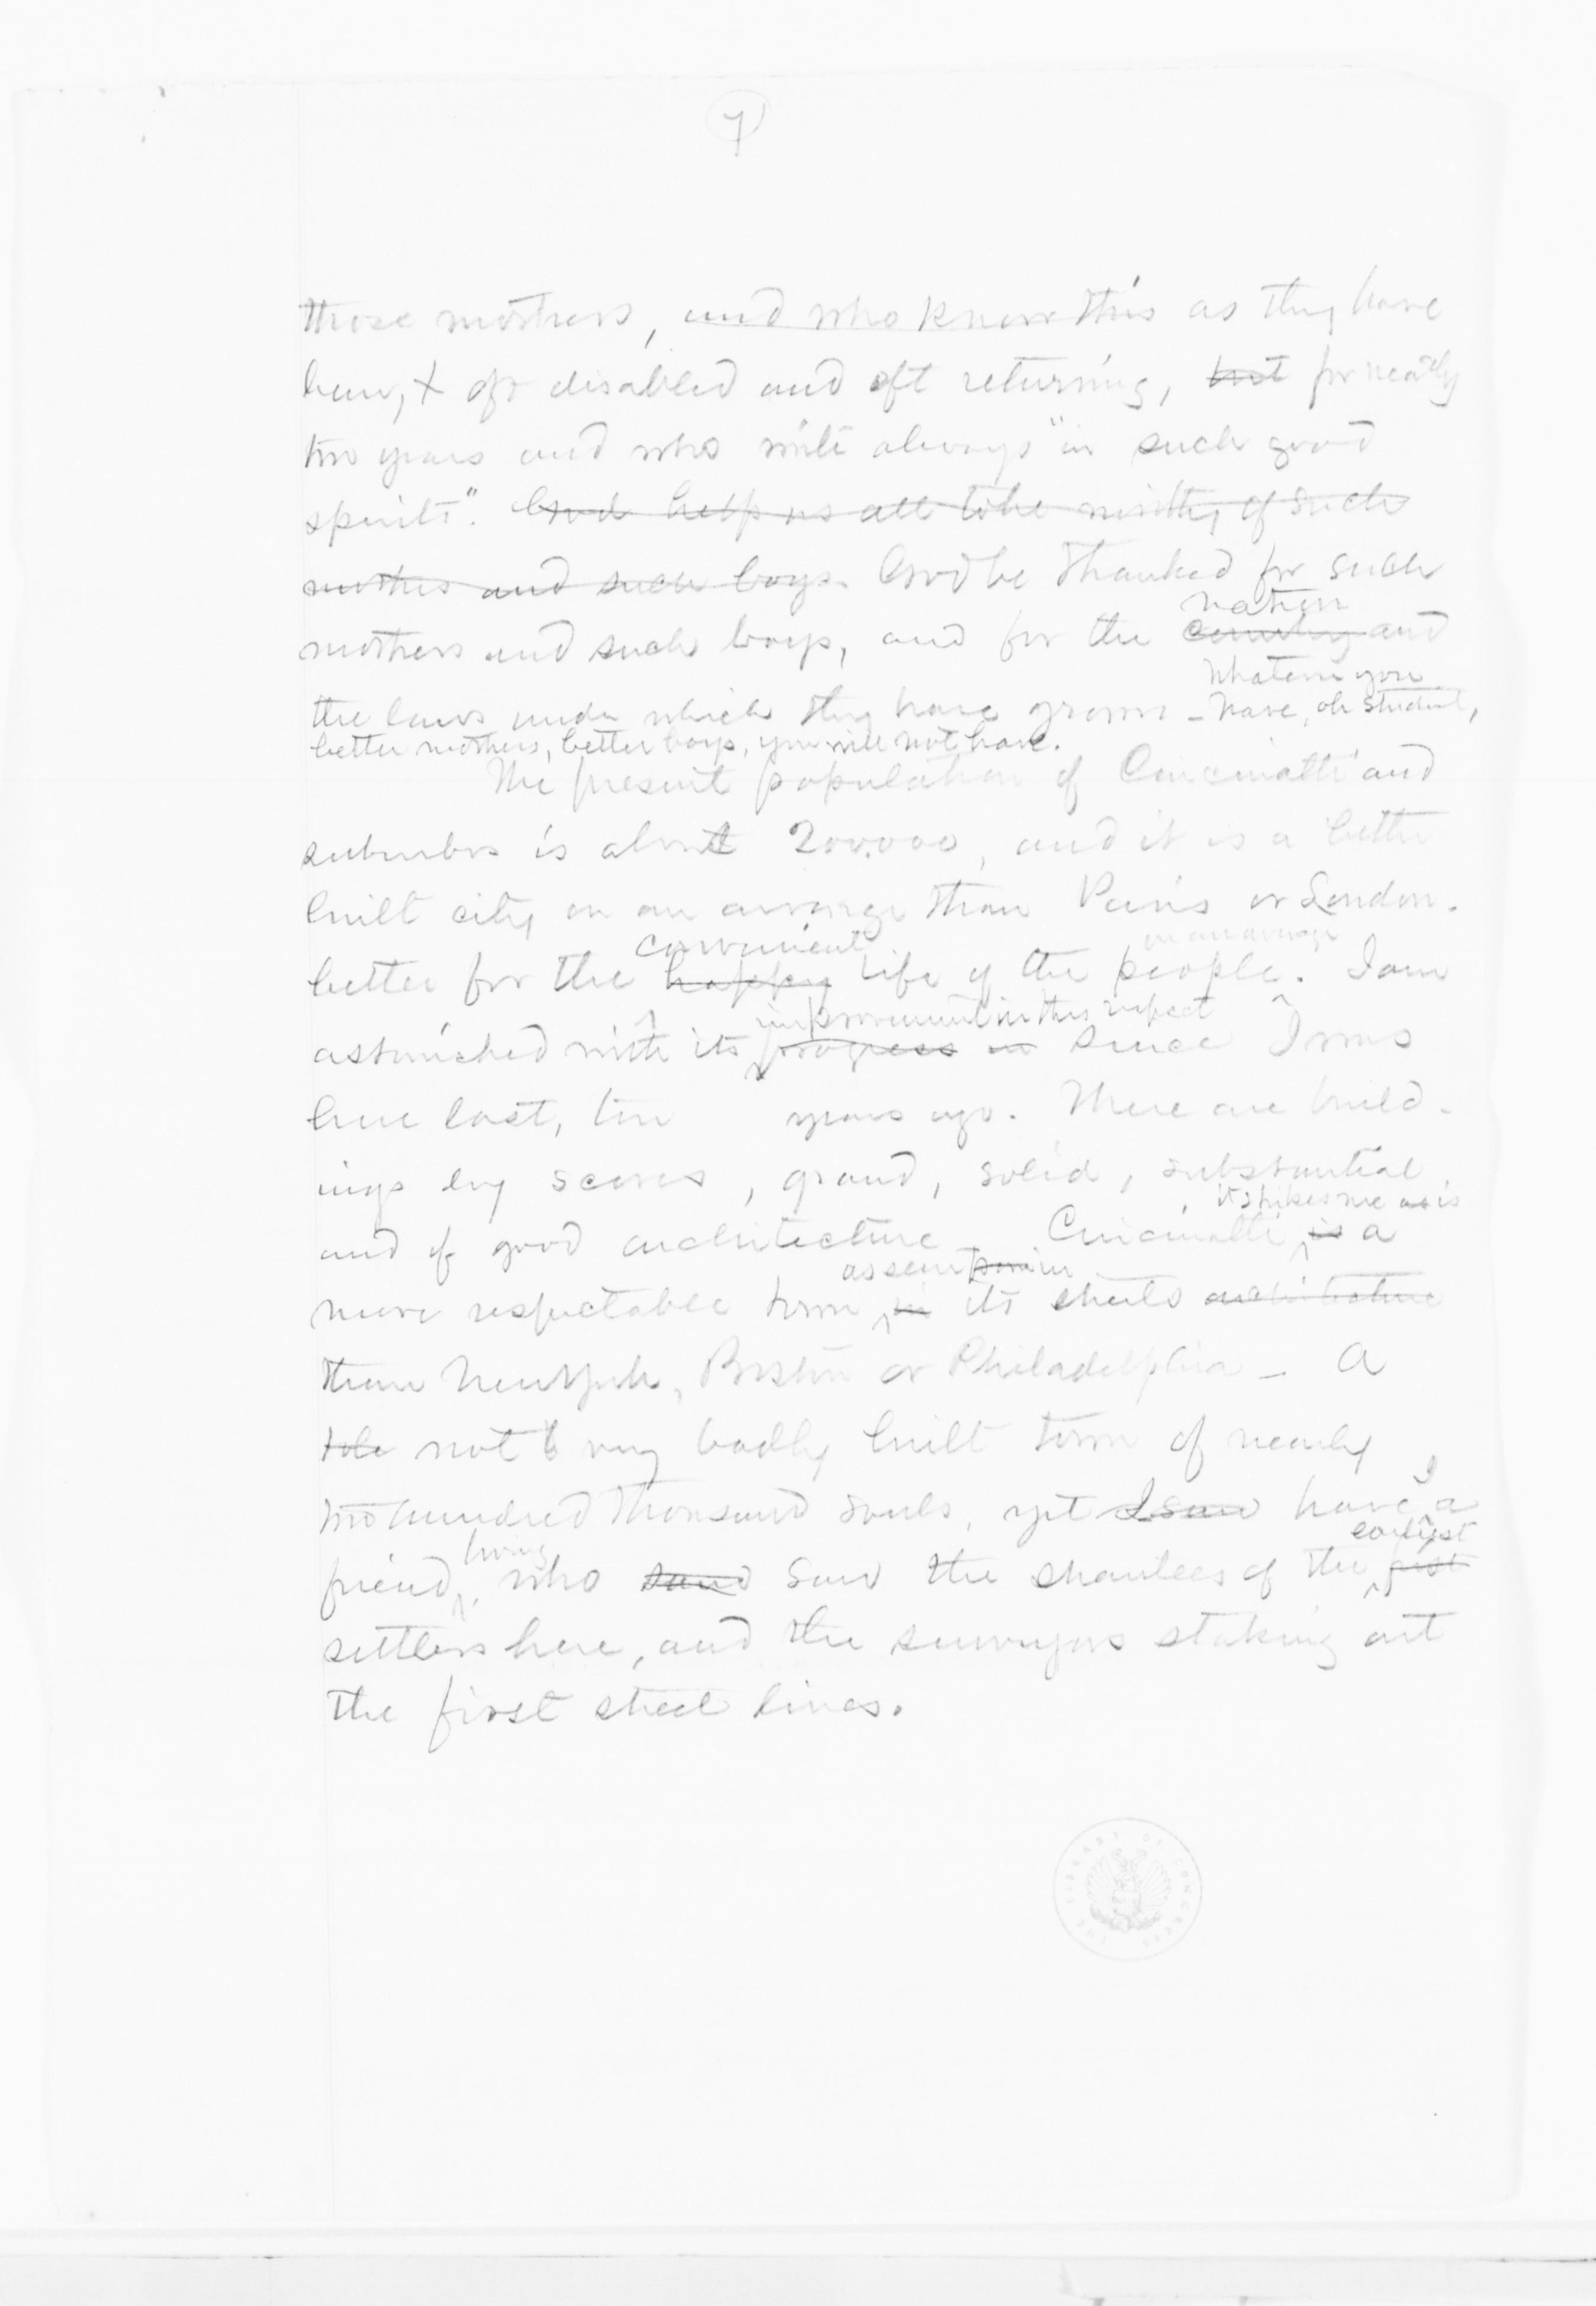 7
those mothers, and who know this as they have
been, + oft disabled and oft returning, but for nearly
two years and who write always "in such good
spirits". God help us all to be worthy of such
mothers and such boys. God be thanked for such
nation
mothers and such boys, and for the country and
whatever you
the laws under which they have grown - have, oh student,
better mothers, better boys, you will not have.
The present population of Cincinatti and
suburbs is about 200.000, and it is a better
built city on an average than Paris or London.
convenient on an average
better for the happy life of the people. I am
improvement in this respect
astonished with its progress in since I was
here last, ten years ago. There are build-
ings by scores, grand, solid, substantial
it strikes me as is
and of good architecture. Cincinatti is a
as seen in
more respectable town in its streets architecture
than New York, Boston or Philadelphia - A
not very badly built town of nearly
I
two hundred thousand souls, yet I saw have a
living earliest
friend, who saw the shantees of the first
settlers here, and the surveyors staking out
the first street lines.
THE LIBRARY OF CONGRESS